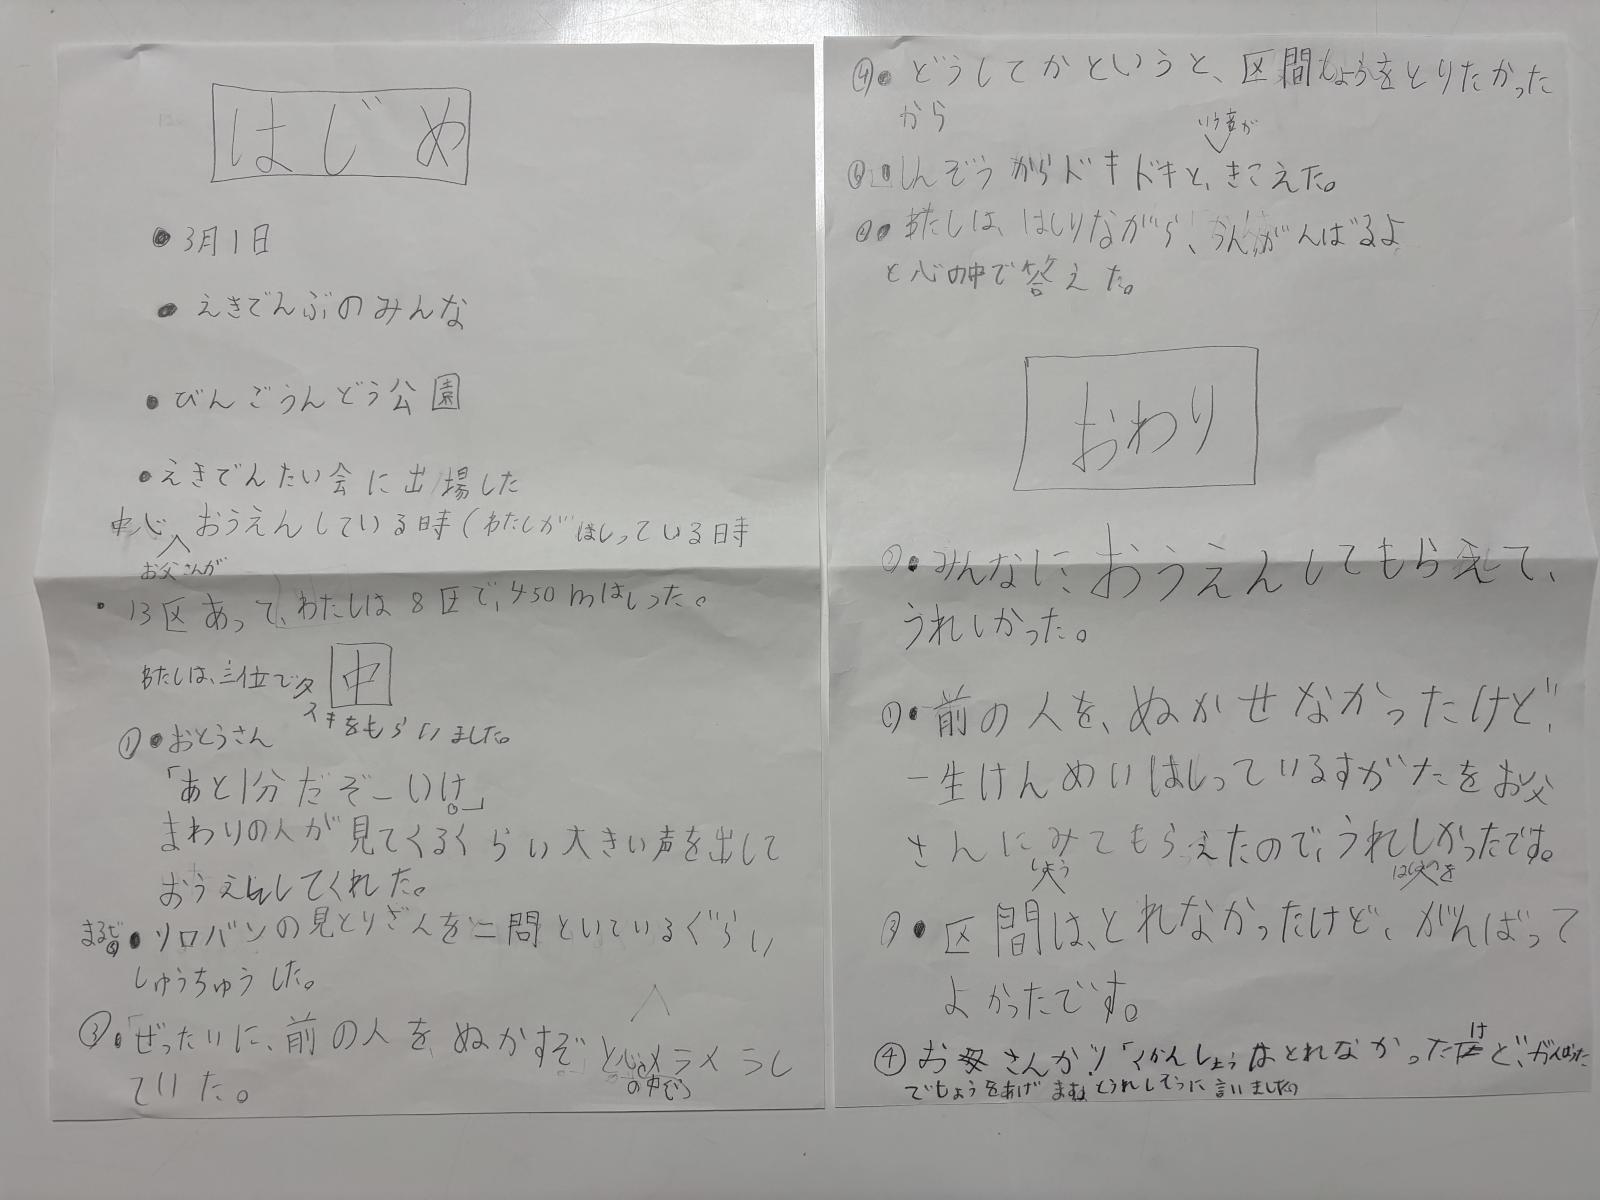 はじめ
●3月1日
●えきでんぶのみんな
●びんごうんどう公園
●えきでんたい会に出場した
中心、おうえんしている時(わたしがはしっている時
お父さんが
●13区あって、わたしは8区で、450mはしった。
わたしは、三位でタ
スキをもらいました。
中
①●おとうさん
「あと1分だぞーいけ。」
まわりの人が見てくるくらい大きい声を出して
おうえんしてくれた。
●ソロバンの見とりざんを二問といているぐらい
しゅうちゅうした。
③●「ぜったいに、前の人を、ぬかすぞ と メラメラし
の中で
ていた。
④●どうしてかというと、区間しょうをとりたかった
から
いう音が
⑥しんぞうからドキドキと、きこえた。
●わたしは、はしりながら、うんがんばるよ
と心の中で答えた。
おわり
②●みんなに、おうえんしてもらえて、
うれしかった。
①●前の人を、ぬかせなかったけど、
一生けんめいはしっているすがたをお父
さんにみてもらえたので、うれしかったです。
しょう
③●区間は、とれなかったけど、がんばって
よかったです。
④お母さんが、「くかんしょうはとれなかったけど、がんばった
でしょうをあげますねとうれしそうに言いました。